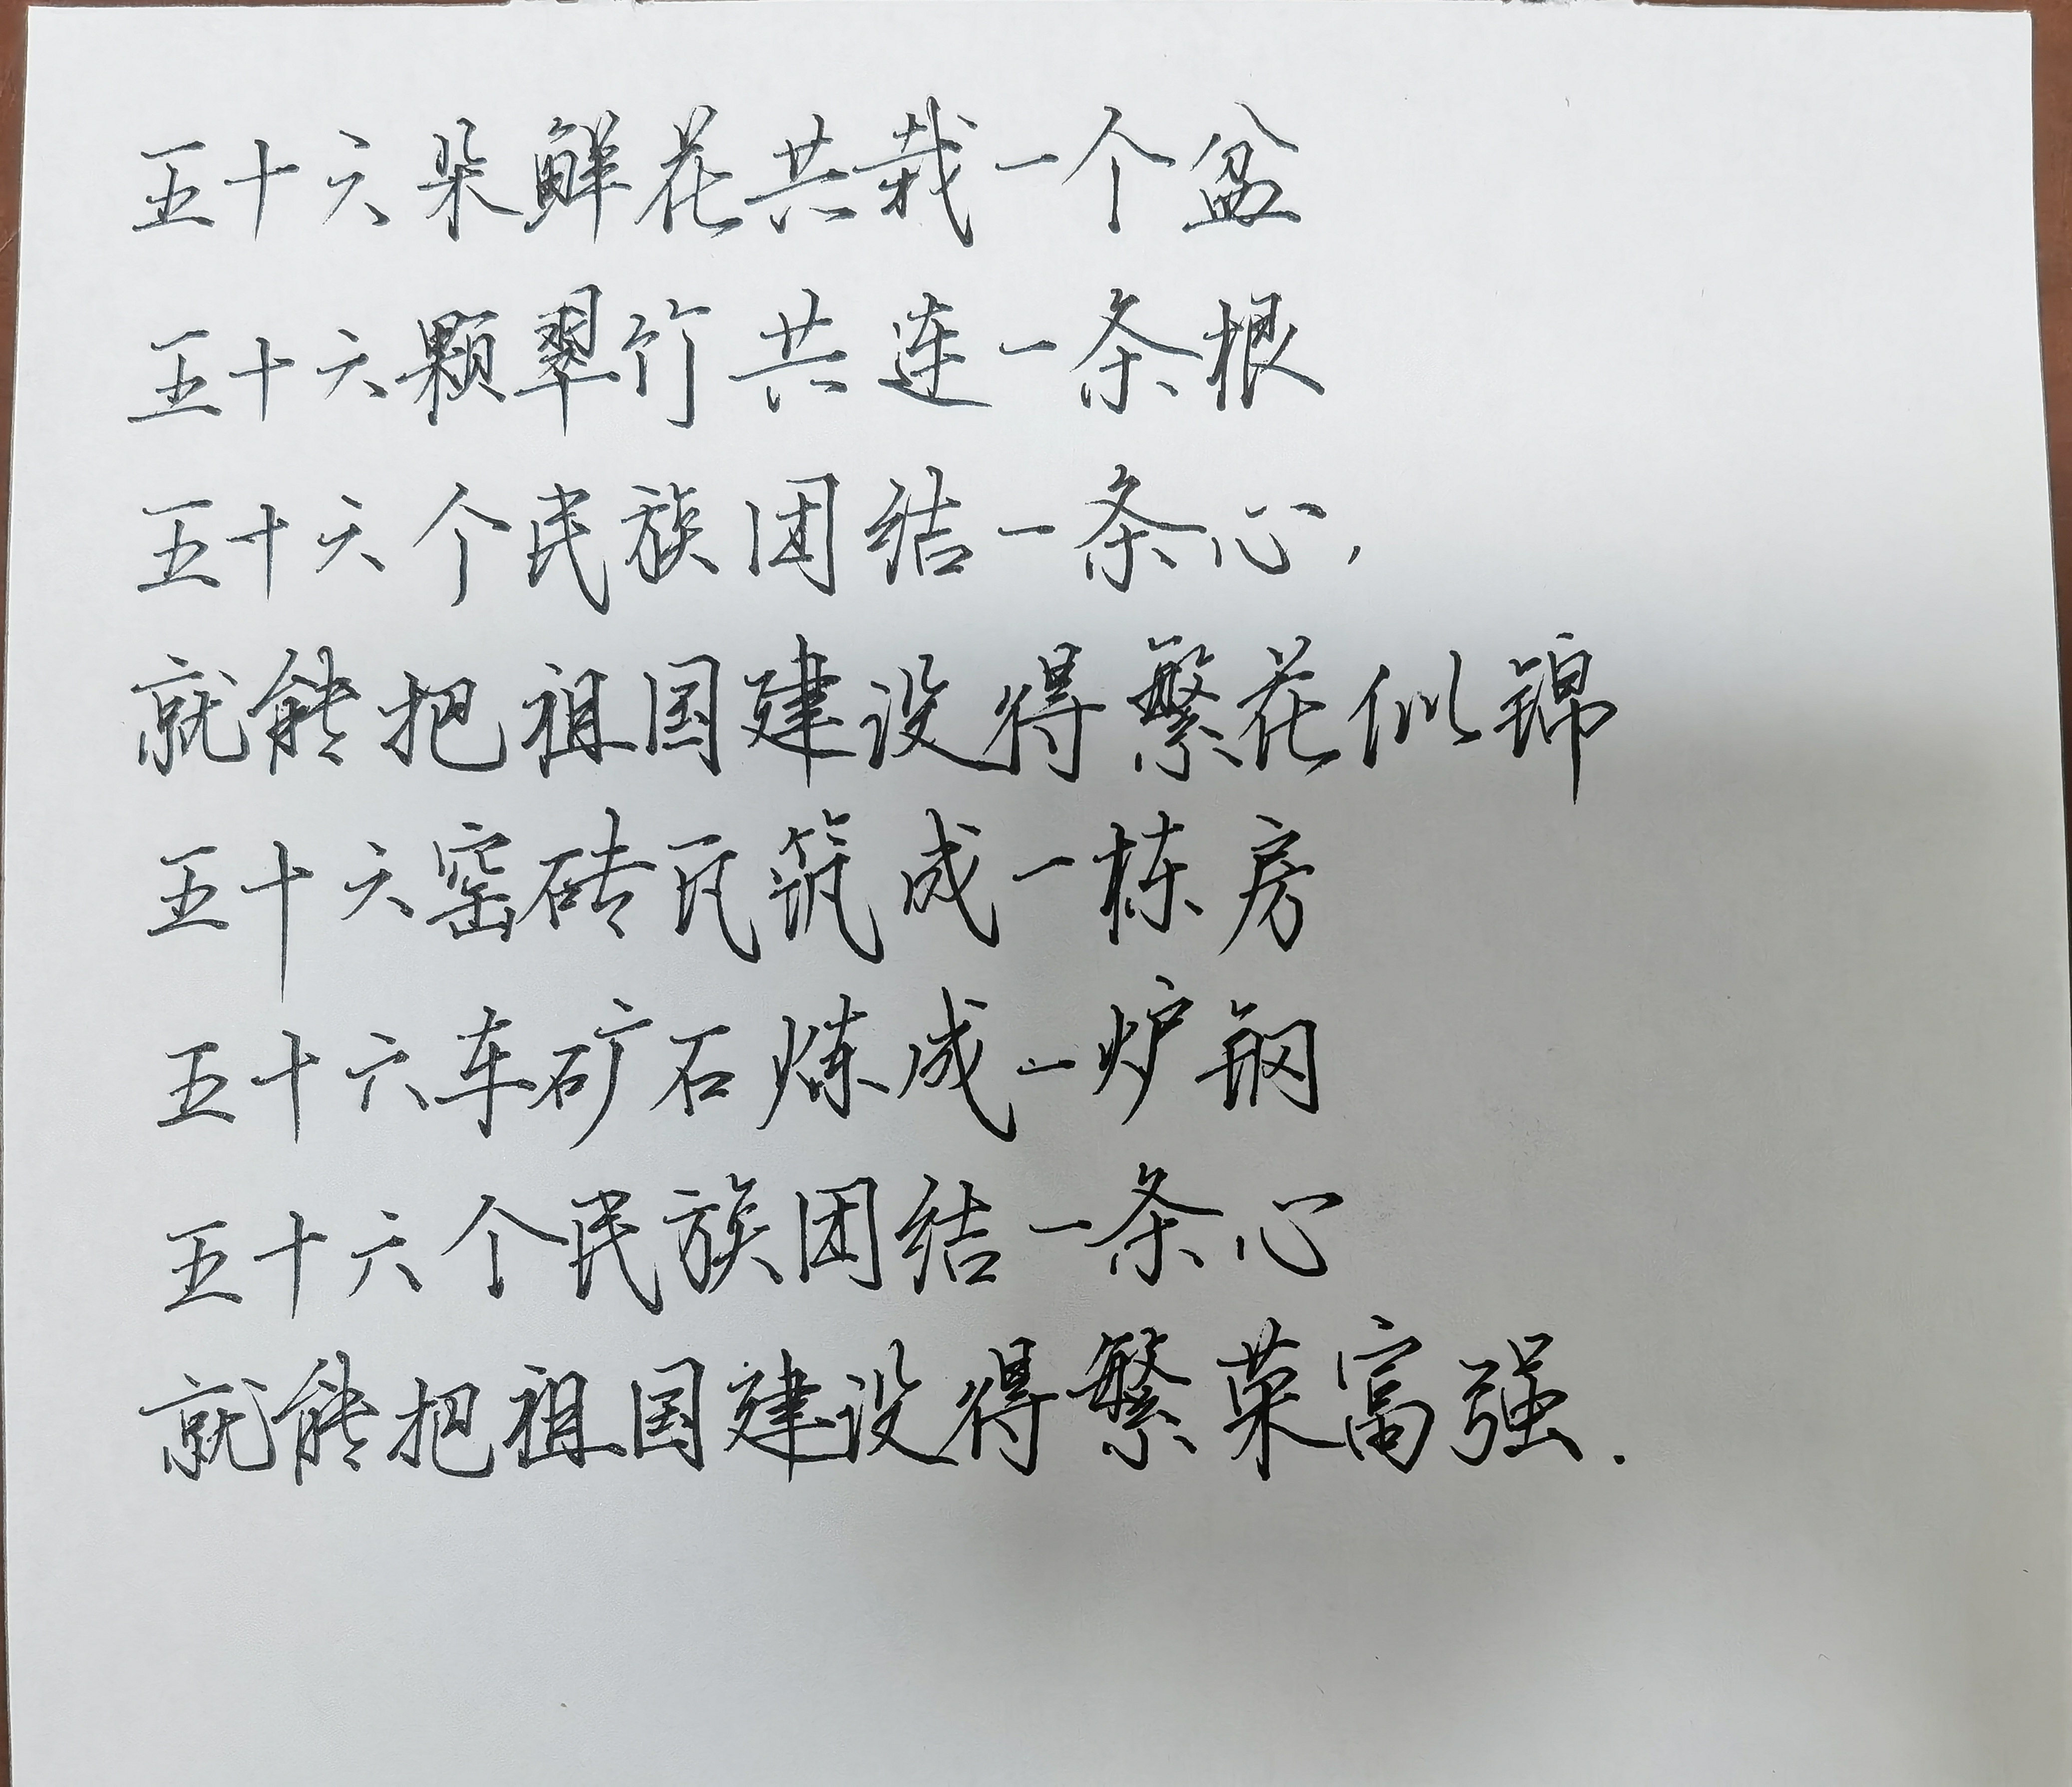 五十六朵鲜花共栽一个盆
五十六颗翠竹共连一条根
五十六个民族团结一条心,
就能把祖国建设得繁花似锦
五十六窑砖瓦筑成一栋房
五十六车矿石炼成一炉钢
五十六个民族团结一条心
就能把祖国建设得繁荣富强.